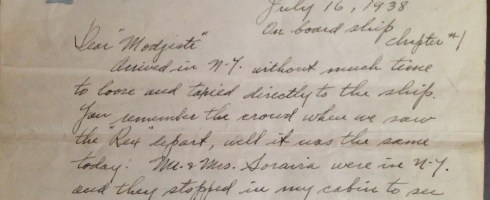 July 16, 1938
On board ship
chapter #1
Dear "Modjiste"
Arrived in N-Y. without much time
to loose and taxied directly to the ship.
You remember the crowd when we saw
the "Rex" depart, well it was the same
today. Mr. & Mrs. Soravia were in N.Y.
and they stopped in my cabin to see